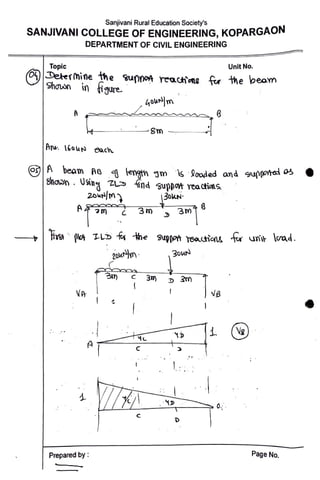 Sanjivani Rural Education Society's
SANJIVANI COLLEGE OF ENGINEERING, KOPARGAON
DEPARTMENT OF CIVIL ENGINEERING
Topic Unit No.
Determine the support reactions for the beam
shown in figure.
40kN/m
A B
8m
Ans. 160kN each
A beam AB of length 9m is loaded and supported as
shown. Using ILD find support reactions.
20kN/m 30kN
A 3m C 3m D 3m B
First plot ILD for the support reactions for unit load.
20kN/m 30kN
3m C 3m D 3m
VA VB
YC YD 1 VB
A
C D
1 YC YD
C D
Prepared by : Page No.